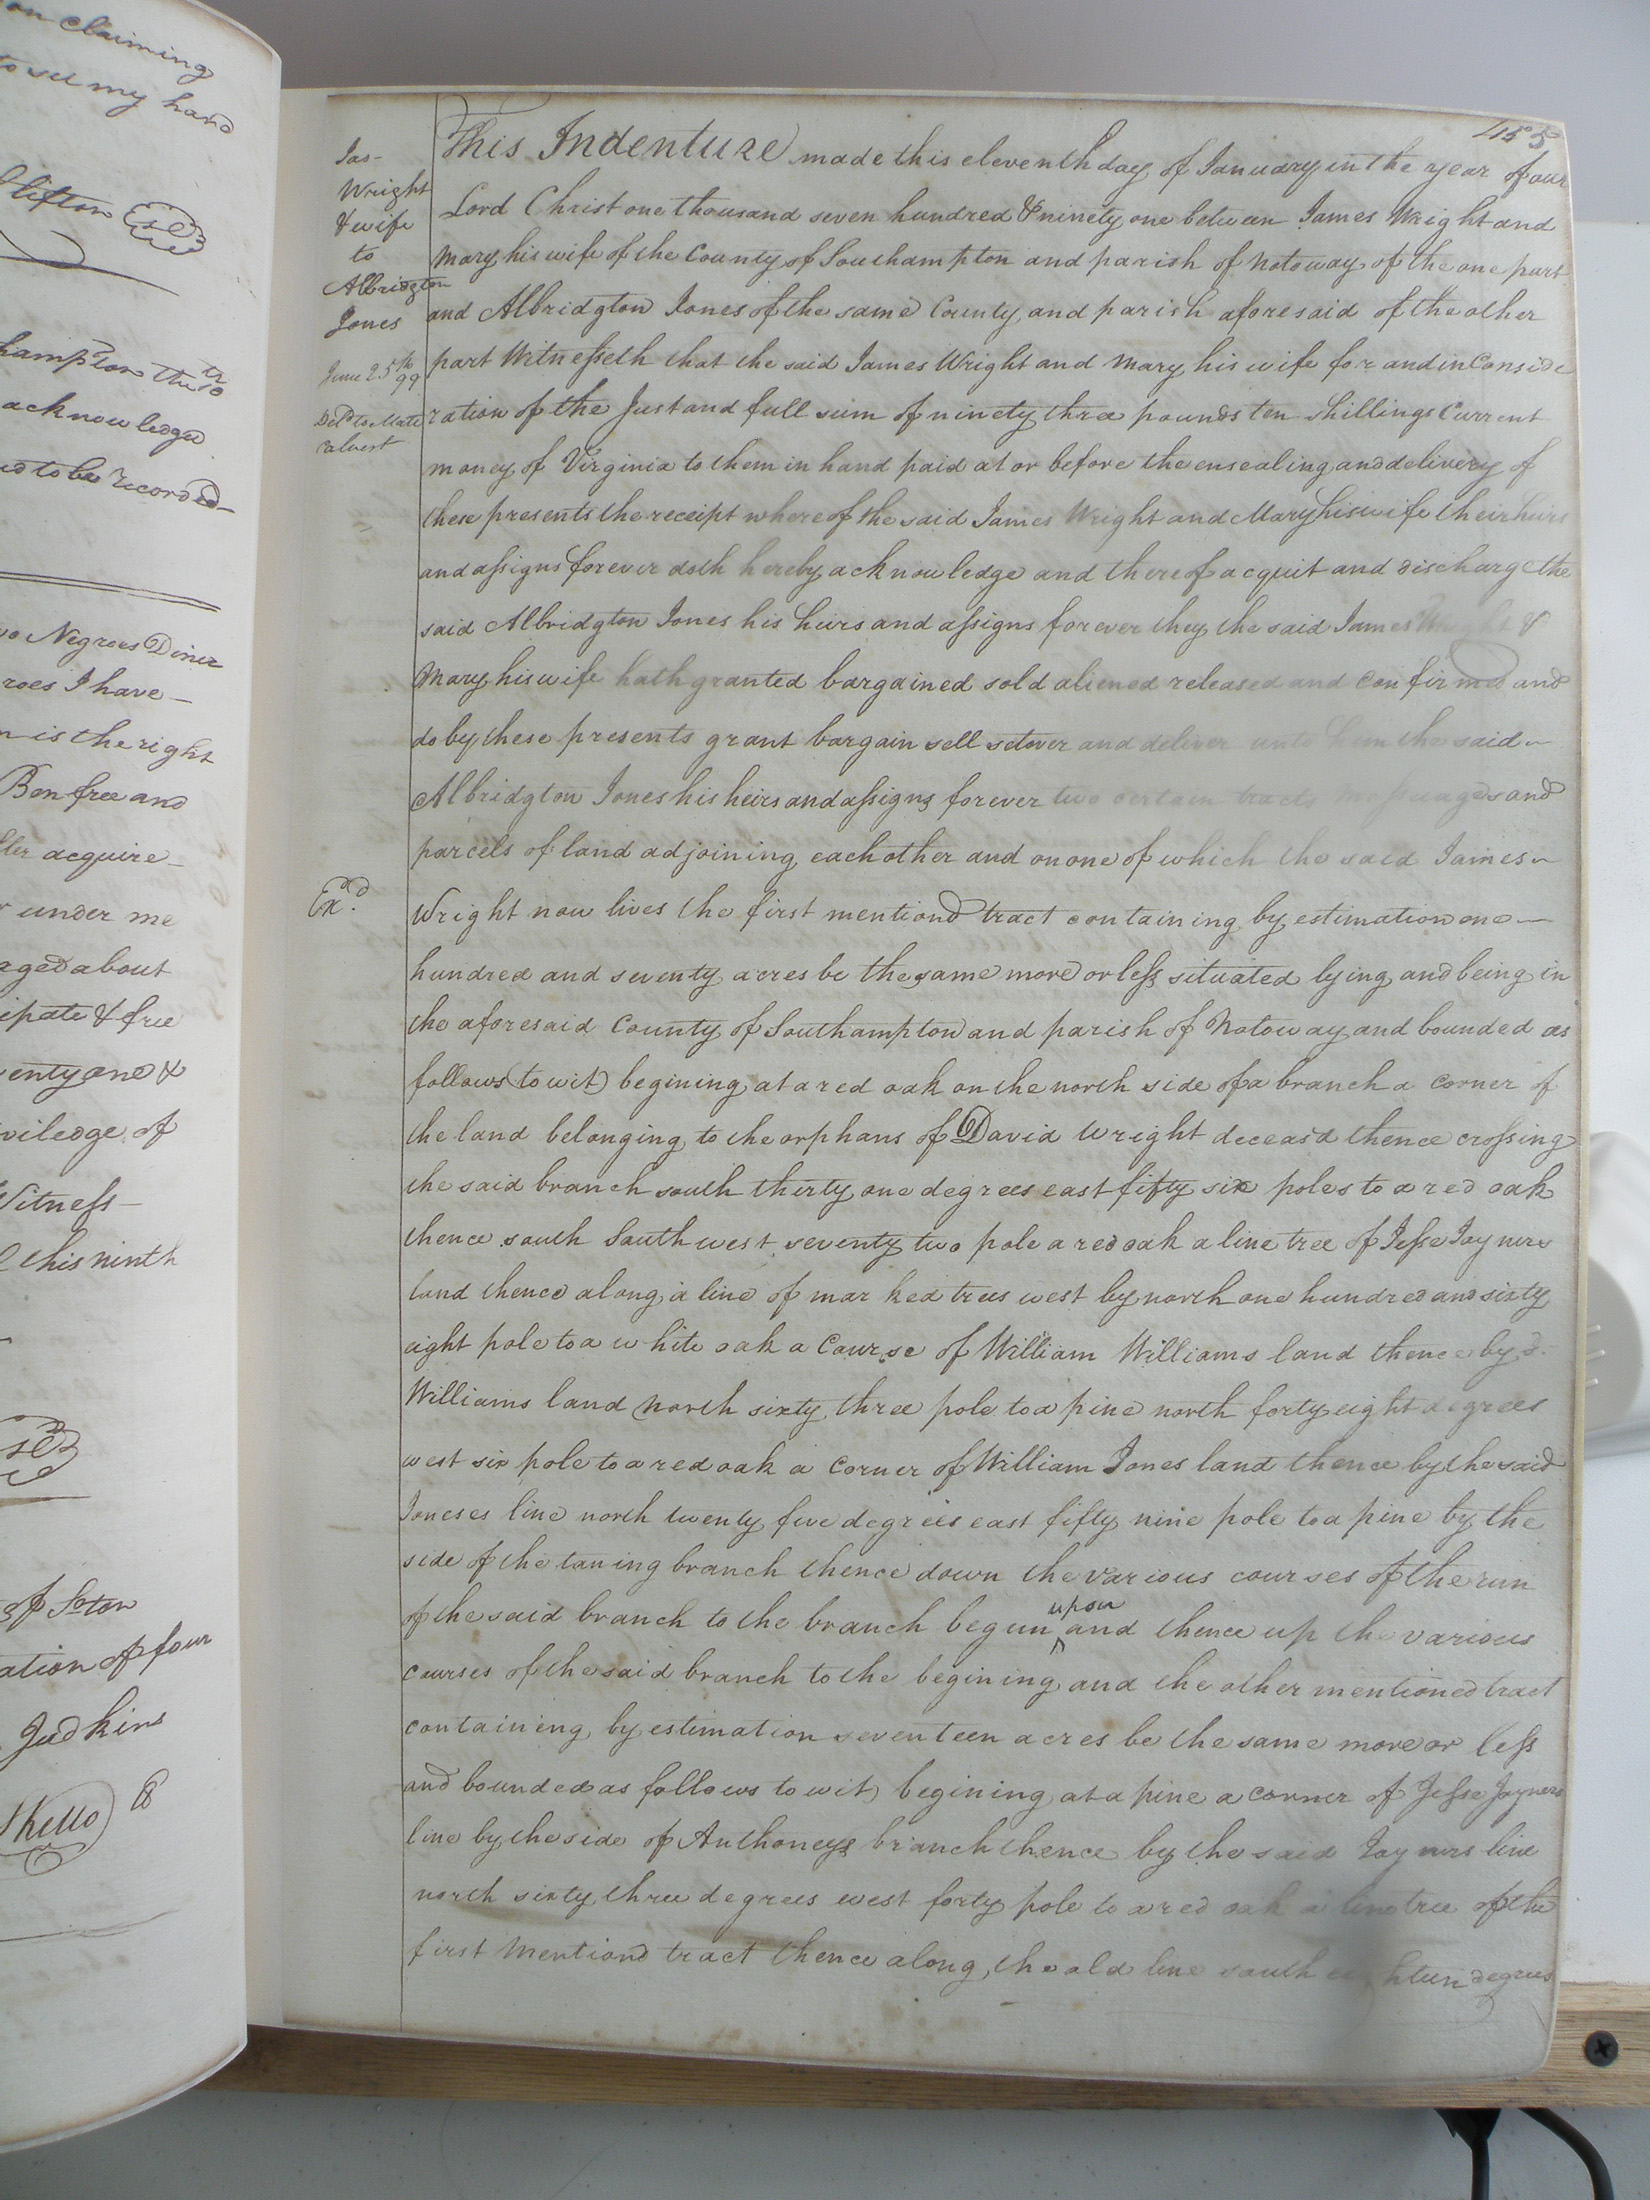 on claiming
to set my hand
Clifton
hampton the 10th
acknowledged
ed to be recorded
Negroes Diner
roes I have
n is the right
Ben free and
fter acquire
under me
aged about
ipate & free
enty one &
viledge of
Witness
this ninth
of Soton
ation of four
Judkins
455
Jas
Wright
& wife
to
Albridgton
Jones
June 25th 99
Deld to Matt
Calvert
Exd
This Indenture made this eleventh day of January in the year of our
Lord Christ one thousand seven hundred & ninety one between James Wright and
Mary his wife of the County of Southampton and parish of Notoway of the one part
and Albridgton Jones of the same County and parish aforesaid of the other
part Witnesseth that the said James Wright and Mary his wife for and in Conside
ration of the Just and full sum of ninety three pounds ten shillings Current
money of Virginia to them in hand paid at or before the ensealing and delivery of
these presents the receipt whereof the said James Wright and Mary his wife their heirs
and assigns forever doth hereby acknowledge and thereof acquit and discharge the
said Albridgton Jones his heirs and assigns forever they the said James Wright &
Mary his wife hath granted bargained sold aliened released and confirmed and
do by these presents grant bargain sell setover and deliver unto him the said
Albridgton Jones his heirs and assigns forever two certain tracts messuages and
parcels of land adjoining each other and on one of which the said James
Wright now lives the first mentiond tract containing by estimation one
hundred and seventy acres be the same more or less situated lying and being in
the aforesaid County of Southampton and parish of Notoway and bounded as
follows (to wit) begining at a red oak on the north side of a branch a corner of
the land belonging to the orphans of David Wright deceasd thence crossing
the said branch south thirty one degrees east fifty six poles to a red oak
thence south Southwest seventy two pole a red oak a line tree of Jesse Joyners
land thence along a line of marked trees west by north one hundred and sixty
eight pole to a white oak a Course of William Williams land thence by sd.
Williams land North sixty three pole to a pine north forty eight degrees
west six pole to a red oak a corner of William Jones land thence by the said
Joneses line north twenty five degrees east fifty nine pole to a pine by the
side of the taning branch thence down the various courses of the run
of the said branch to the branch begun upon and thence up the various
courses of the said branch to the begining and the other mentioned tract
containing by estimation seventeen acres be the same more or less
and bounded as follows to wit) begining at a pine a corner of Jesse Joyners
line by the side of Anthoneys branch thence by the said Joyners line
north sixty three degrees west forty pole to a red oak a line tree of the
first Mentiond tract thence along the old line south eighteen degrees